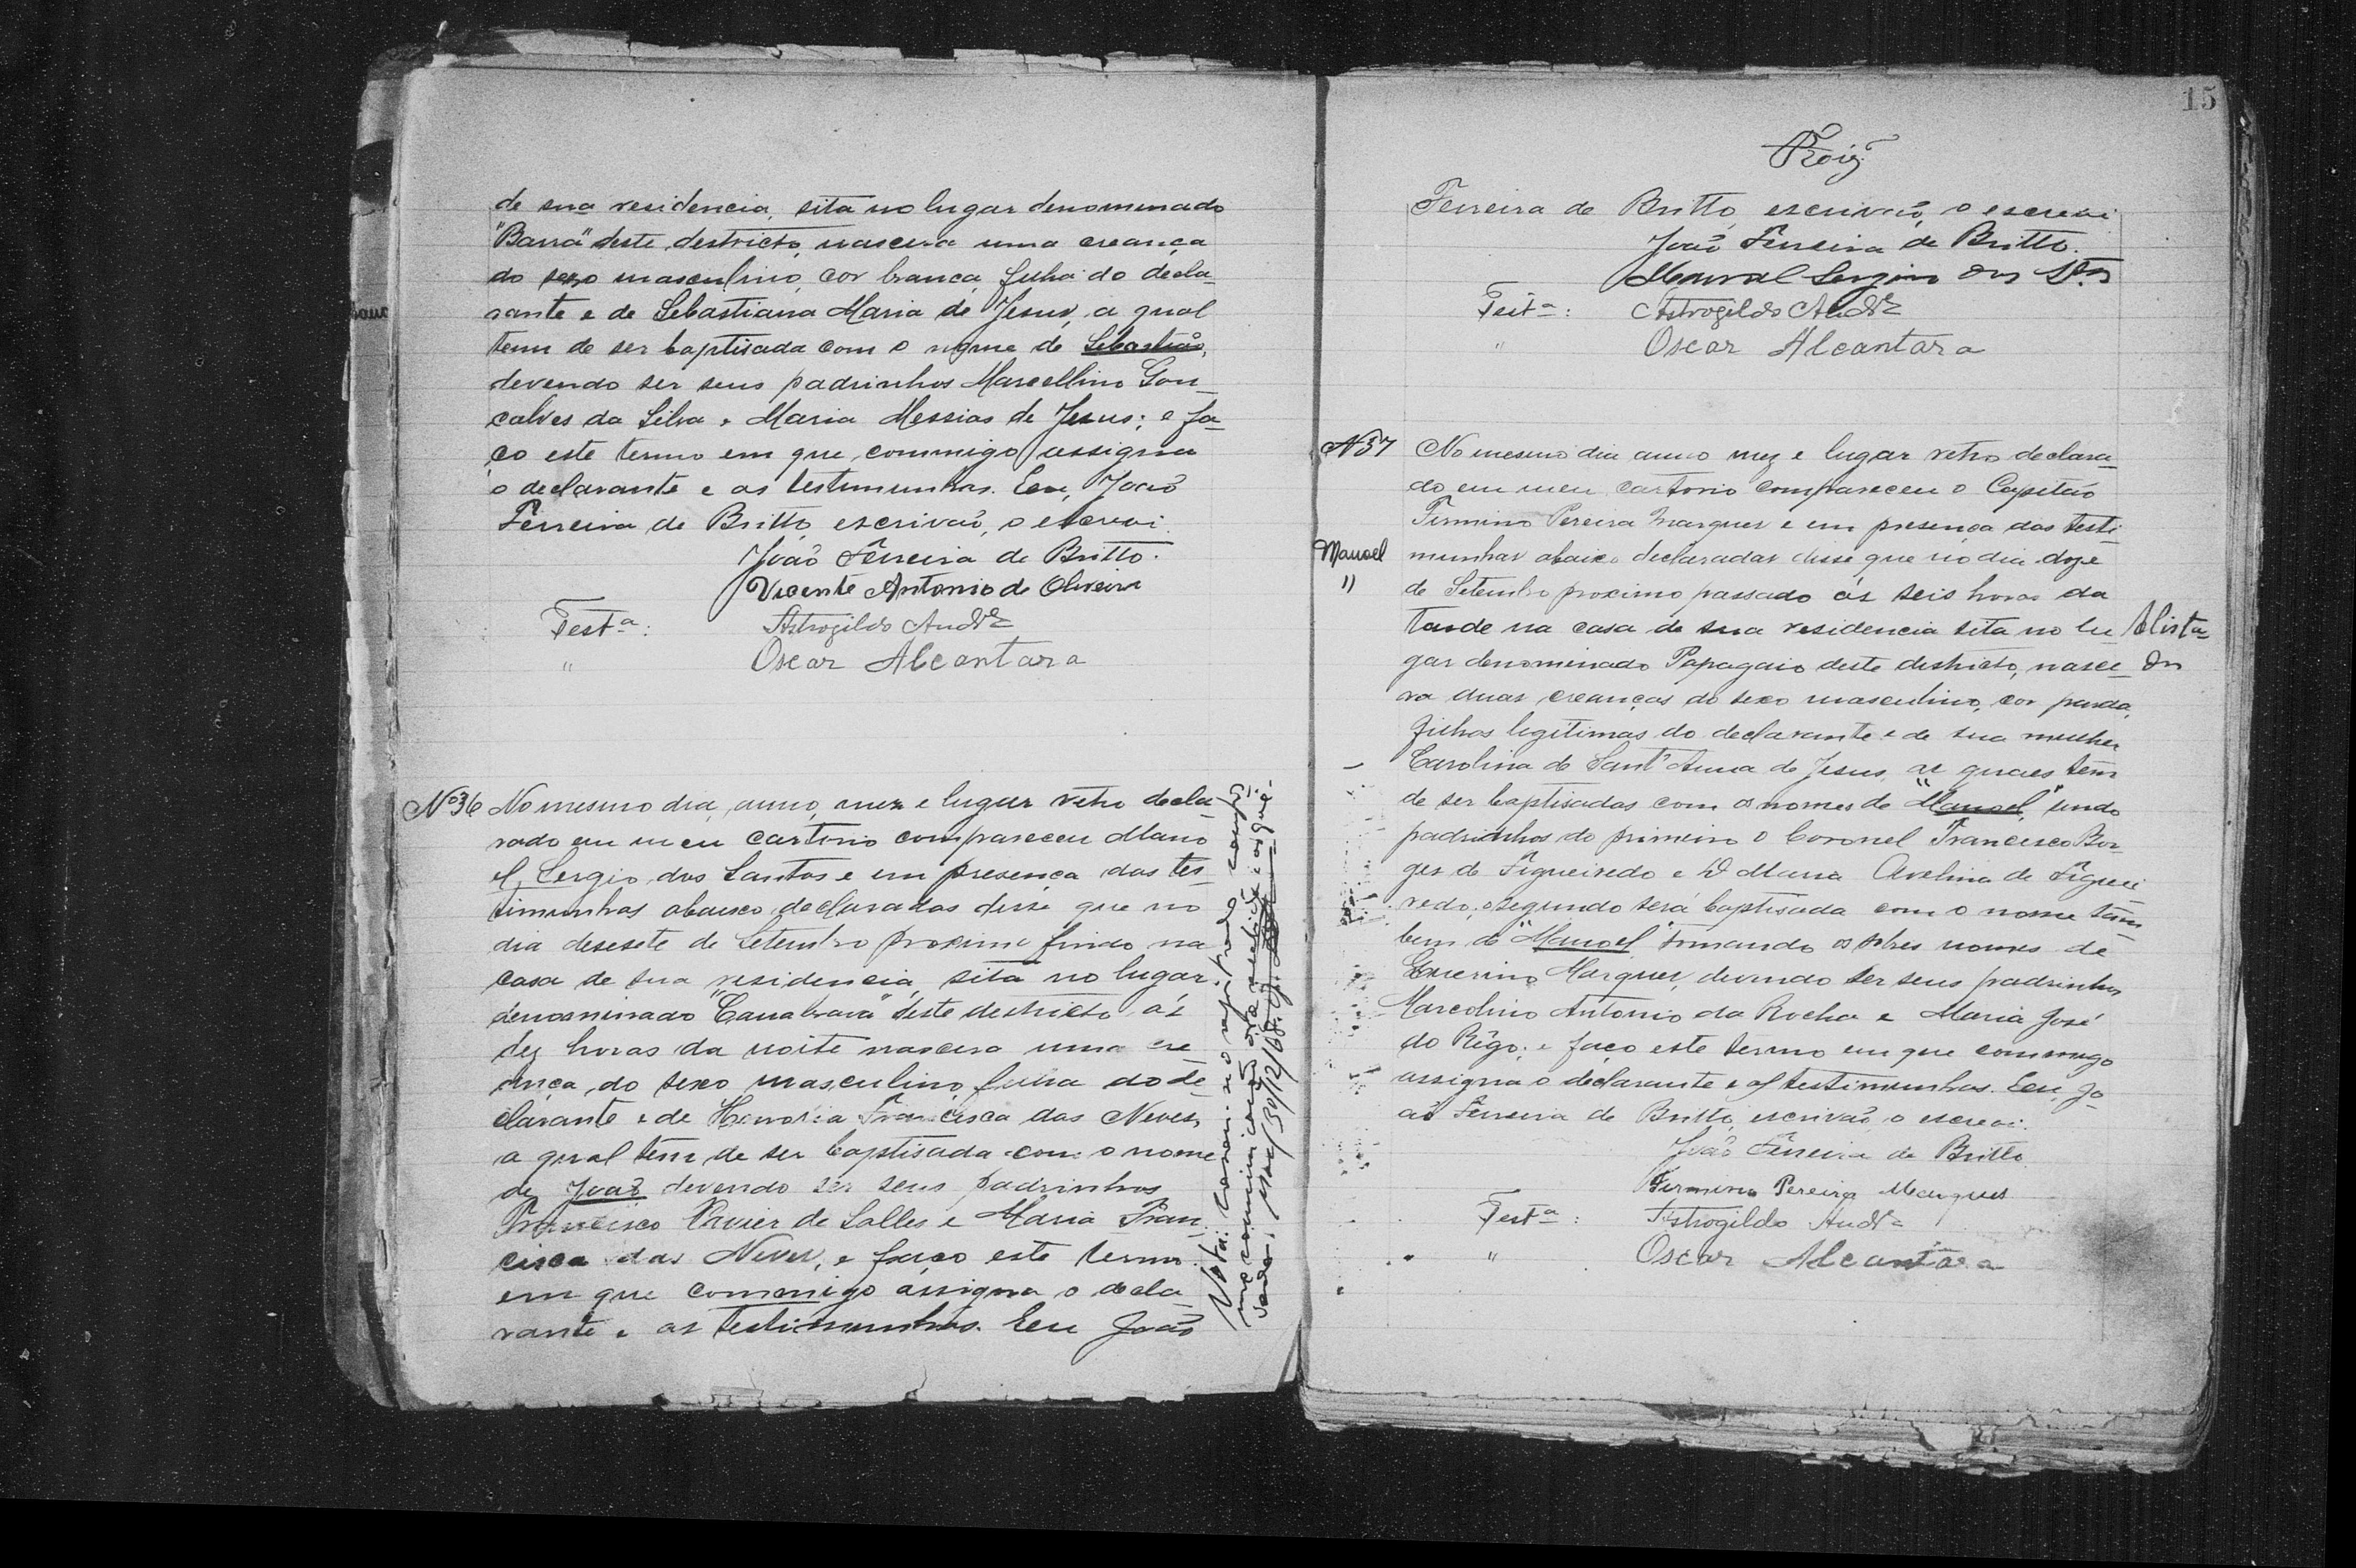 de sua residencia, sita no lugar denominado
"Barra" deste destricto, nascera uma creança
do sexo masculino, cor branca, filha do decla-
rante e de Sebastiana Maria de Jesus, a qual
tem de ser baptisada com o nome de Sebastião,
devendo ser seus padrinhos Marcellino Gon-
çalves da Silva e Maria Messias de Jesus; e fa-
ço este termo em que commigo assigna
o declarante e as testimunhas. Eeu, João
Ferreira de Britto, escrivão, o escrevi.
João Ferreira de Britto.
Vicente Antonio de Oliveira
Testª: Astrogildo Andre
" Oscar Alcantara
Nº 36 No mesmo dia, anno, mez e lugar retro decla-
rado em meu cartorio compareceu Mano
el Sergio dos Santos e em presença das tes-
timunhas abaixo declaradas disse que no
dia desesete de Setembro proximo findo na
casa de sua residencia, sita no lugar
denominado "Canabrava" deste destricto ás
dez horas da noite nascera uma cre
ança do sexo masculino, filha do de-
clarante e de Honoria Francisca das Neves,
a qual tem de ser baptisada com o nome
de João devendo ser seus padrinhos
Francisco Xavier de Salles e Maria Fran-
cisca das Neves, e faço este termo
em que commigo assigna o decla-
rante e as testimunhas. Eeu João
Nota: Casou-se o registrado
me comunicação
30/12/68.
15
Ferreira de Britto, escrivão, o escrevi
João Ferreira de Britto.
Manoel Sergio dos Stos
Testª: Astrogildo Andre
" Oscar Alcantara
N 37 No mesmo dia anno mez e lugar retro declara-
do em meu cartorio compareceu o Capitão
Firmino Pereira Marques e em presença das testi
Manoel munhas abaixo declaradas disse que no dia doze
" de Setembro proximo passado ás seis horas da
tarde na casa de sua residencia sita no lu Alista-
gar denominado Papagaio deste destricto, nasce- do
ra duas creanças do sexo masculino, cor parda,
filhas legitimas do declarante e de sua mulher
Carolina de Sant'Anna de Jesus, as quaes têm
de ser baptisadas com os nomes de "Manoel" sendo
padrinhos do primeiro o Coronel Francisco Bor-
ges de Figueiredo e D Maria Avelina de Figuei
redo, o segundo será baptisada com o nome tam-
bem de "Manoel" tomando os sobres nomes de
Marques, devendo ser seus padrinhos
Marcolino Antonio da Rocha e Maria José
do Rêgo; e faço este termo em que commigo
assigna o declarante e as testimunhas. Eeu, Jo-
ão Ferreira de Britto, escrivão, o escrevi.
João Ferreira de Britto
Firmino Pereira Marques
Testª: Astrogildo Andre
" Oscar Alcantara